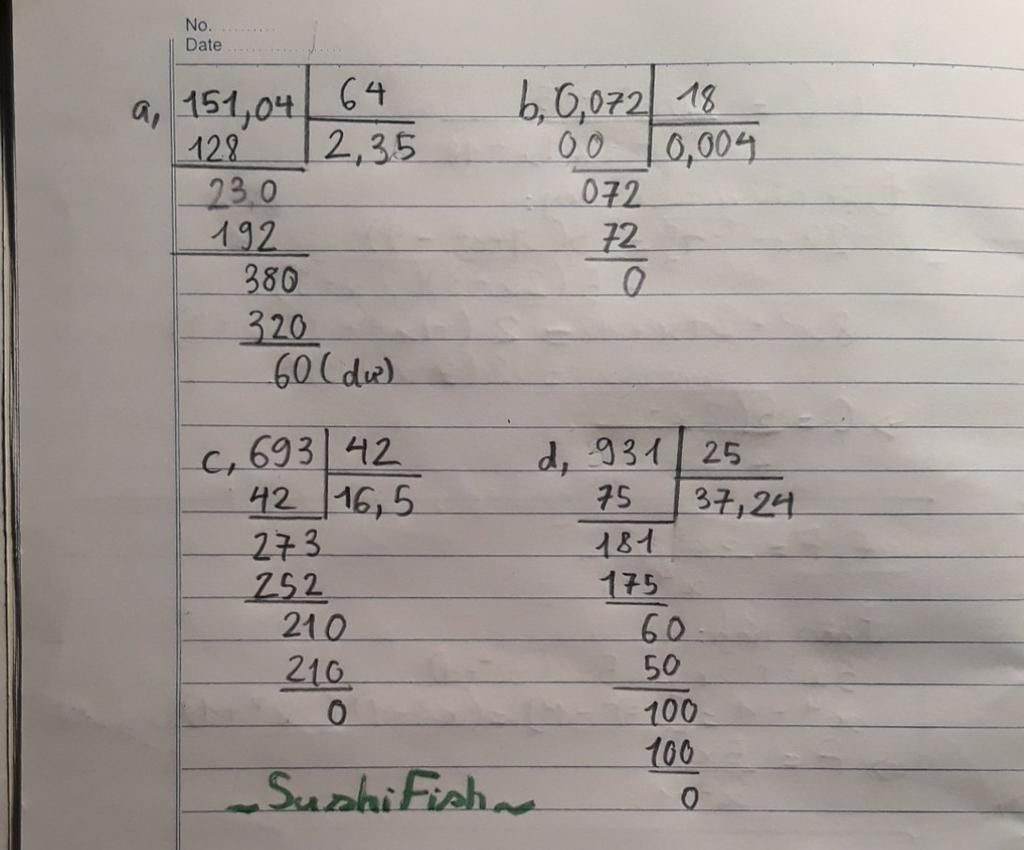 No. ..........
Date ....................
a, 151,04 64
128 2,35
23,0
192
380
320
60 (dư)
b, 0,072 18
00 0,004
072
72
0
c, 693 42
42 16,5
273
252
210
210
0
d, 931 25
75 37,24
181
175
60
50
100
100
0
~SushiFish~